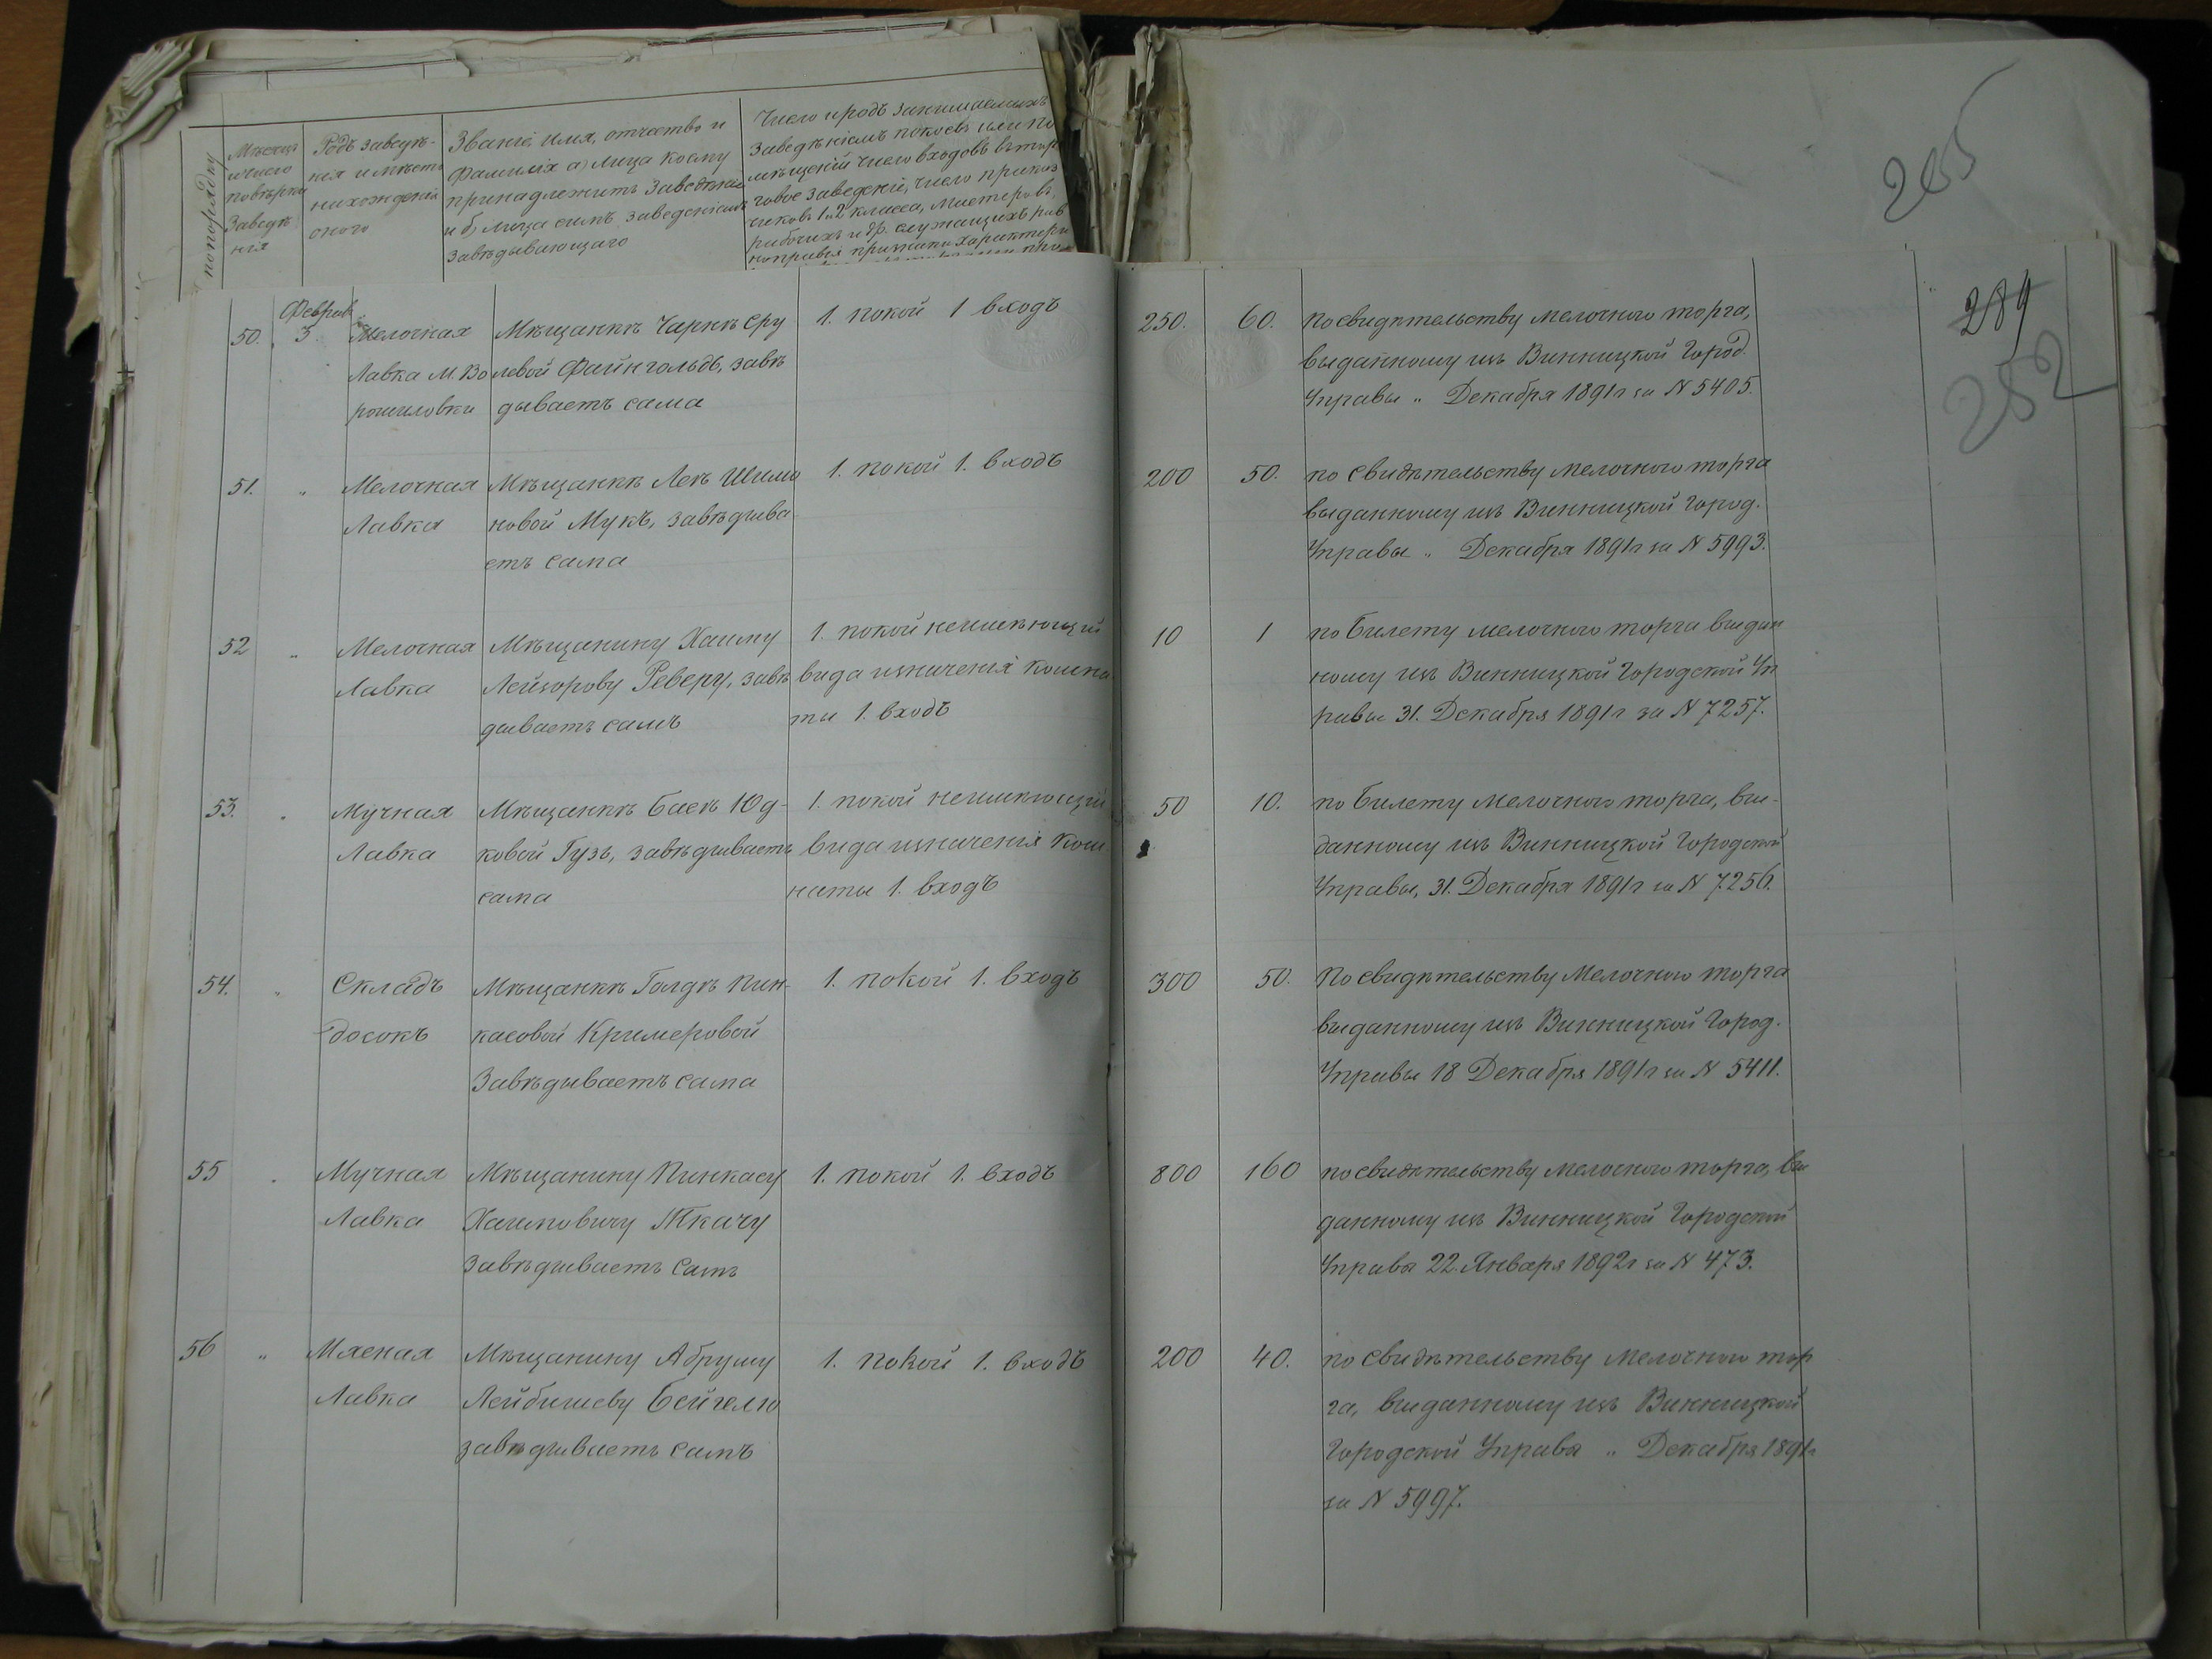 попорядку
Мѣсяцъ
и число
повѣрки
Заведѣ
нія
Родъ заведѣ-
нія и мѣсто
нахожденія
оного
Званіе, имя, отчество и
фамилія а) лица коему
принадлежитъ заведѣніе
и б) лица симъ заведеніемъ
завѣдывающаго
Число и родъ занимаемыхъ
заведѣніемъ покоевъ или по
мѣщеній число входовъ въ тор
говое заведеніе, число приказ
чиковъ 1 и 2 класса, мастеровъ,
рабочихъ и др. служащихъ рав
265
50. Феврал. 3. Мелочная Мѣщанкѣ Чарнѣ Сру 1. покой 1 входъ 250. 60. По свидѣтельству мелочного торга,
Лавка м. Во левой Файнгольдъ, завѣ выданному изъ Винницкой Город.
рошиловки дываетъ сама Управы „ Декабря 1891 г за N 5405.
289
252
51. „ Мелочная Мѣщанкѣ Леѣ Шимо 1. покой 1. входъ 200 50. по свидѣтельству мелочного торга
Лавка новой Мукъ, завѣдыва- выданному изъ Винницкой Город.
етъ сама Управы „ Декабря 1891 г за N 5993.
52 „ Мелочная Мѣщанину Хаиму 1. покой неимѣющій 10 1 по Билету мелочного торга выдан
Лавка Лейзорову Реверу, завѣ вида и значенія комна ному изъ Винницкой Городской Уп
дываетъ самъ ты 1. входъ равы 31. Декабря 1891 г за N 7257.
53. „ Мучная Мѣщанкѣ Басѣ Юд- 1. покой неимѣющій 50 10. по Билету мелочного торга, вы-
Лавка ковой Гузъ, завѣдываетъ вида и значенія ком данному изъ Винницкой Городской
сама наты 1. входъ Управы, 31. Декабря 1891 г за N 7256.
54. „ Складъ Мѣщанкѣ Голдѣ Пин- 1. покой 1. входъ 300 50. По свидѣтельству Мелочного торга
досокъ касовой Кримеровой выданному изъ Винницкой Город.
Завѣдываетъ сама Управы 18 Декабря 1891 г за N 5411.
55 „ Мучная Мѣщанину Пинкасу 1. покой 1. входъ 800 160 по свидѣтельству мелочного торга, вы
Лавка Хаимовичу Ткачу данному изъ Винницкой Городской
Завѣдываетъ Самъ Управы 22. Января 1892 г за N 473.
56 „ Мясная Мѣщанину Абруму 1. покой 1. входъ 200 40. по свидѣтельству мелочного тор
Лавка Лейбишеву Бейгелю га, выданному изъ Винницкой
завѣдываетъ самъ Городской Управы „ Декабря 1891 г
за N 5997.